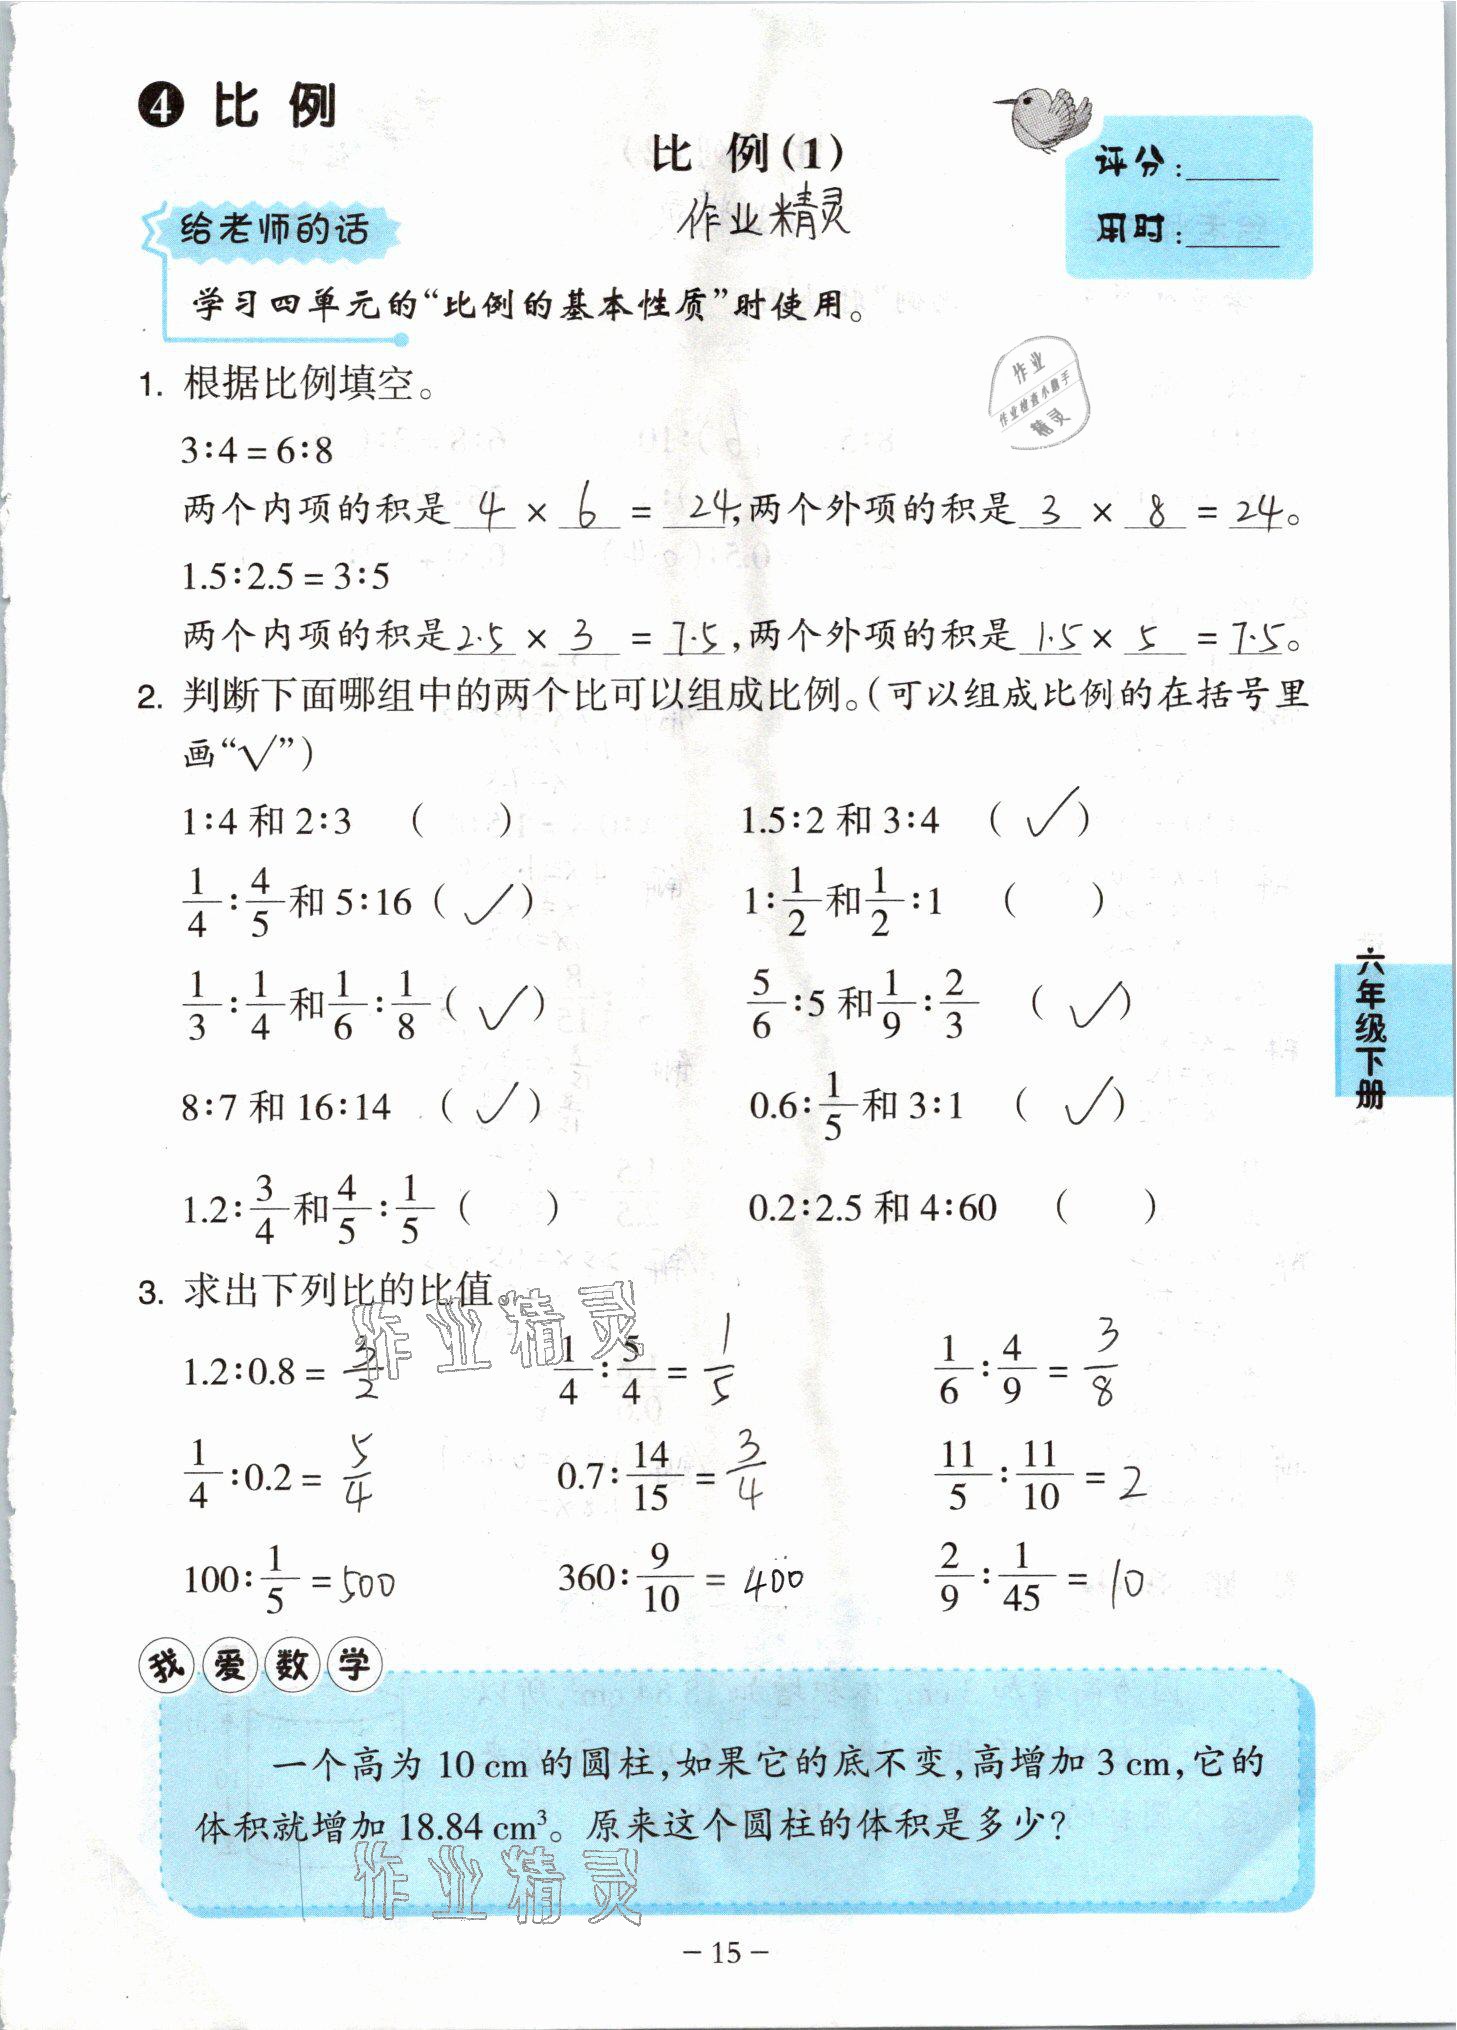 4 比例
比 例(1)
作业精灵
评分:
用时:
给老师的话
学习四单元的“比例的基本性质”时使用。
作业
作业检查小助手
精灵
1. 根据比例填空。
3∶4=6∶8
两个内项的积是 4 × 6 = 24,两个外项的积是 3 × 8 = 24。
1.5∶2.5=3∶5
两个内项的积是 2.5 × 3 = 7.5,两个外项的积是 1.5 × 5 = 7.5。
2. 判断下面哪组中的两个比可以组成比例。(可以组成比例的在括号里
画“√”)
1∶4 和 2∶3 ( ) 1.5∶2 和 3∶4 (✓)
1/4∶4/5 和 5∶16 (✓) 1∶1/2 和 1/2∶1 ( )
1/3∶1/4 和 1/6∶1/8 (✓) 5/6∶5 和 1/9∶2/3 (✓)
8∶7 和 16∶14 (✓) 0.6∶1/5 和 3∶1 (✓)
1.2∶3/4 和 4/5∶1/5 ( ) 0.2∶2.5 和 4∶60 ( )
六年级下册
3. 求出下列比的比值
作业精灵
1.2∶0.8 = 3/2 1/4∶5/4 = 1/5 1/6∶4/9 = 3/8
1/4∶0.2 = 5/4 0.7∶14/15 = 3/4 11/5∶11/10 = 2
100∶1/5 = 500 360∶9/10 = 400 2/9∶1/45 = 10
我爱数学
一个高为 10 cm 的圆柱,如果它的底不变,高增加 3 cm,它的
体积就增加 18.84 cm³。原来这个圆柱的体积是多少?
作业精灵
– 15 –